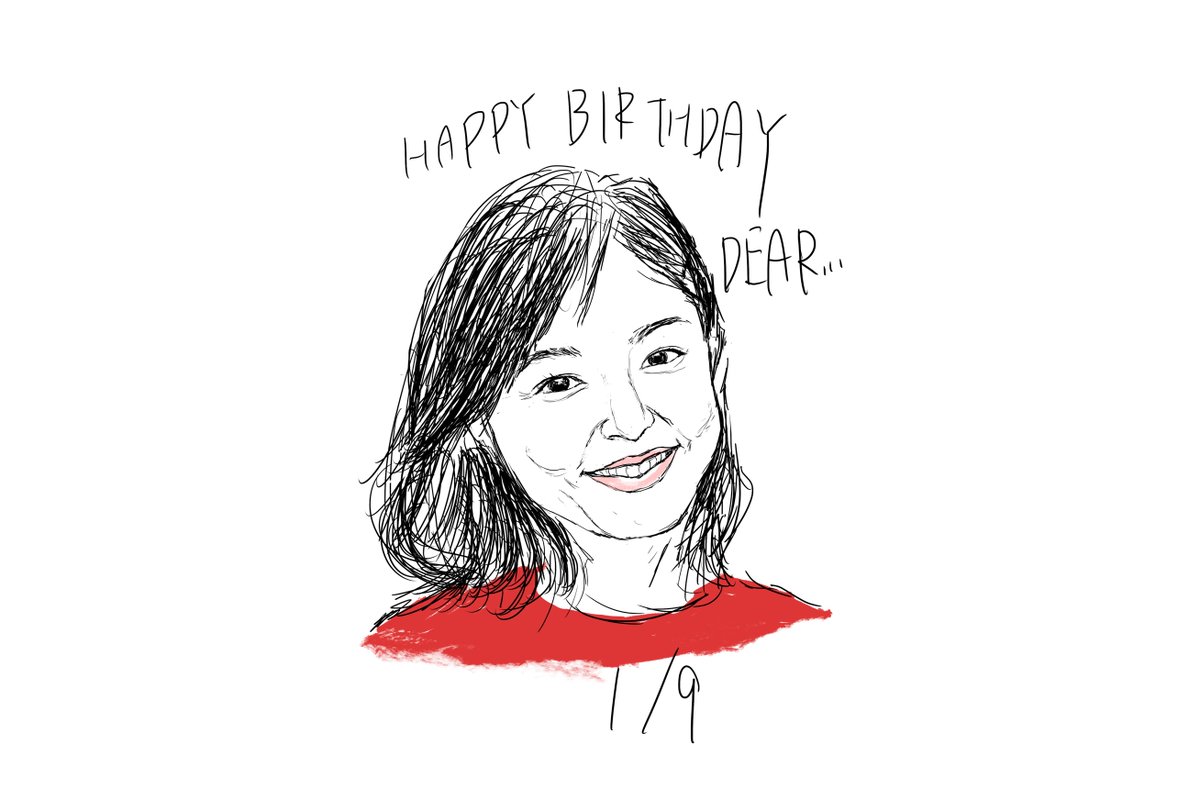 HAPPY BIRTHDAY
DEAR...
1/9